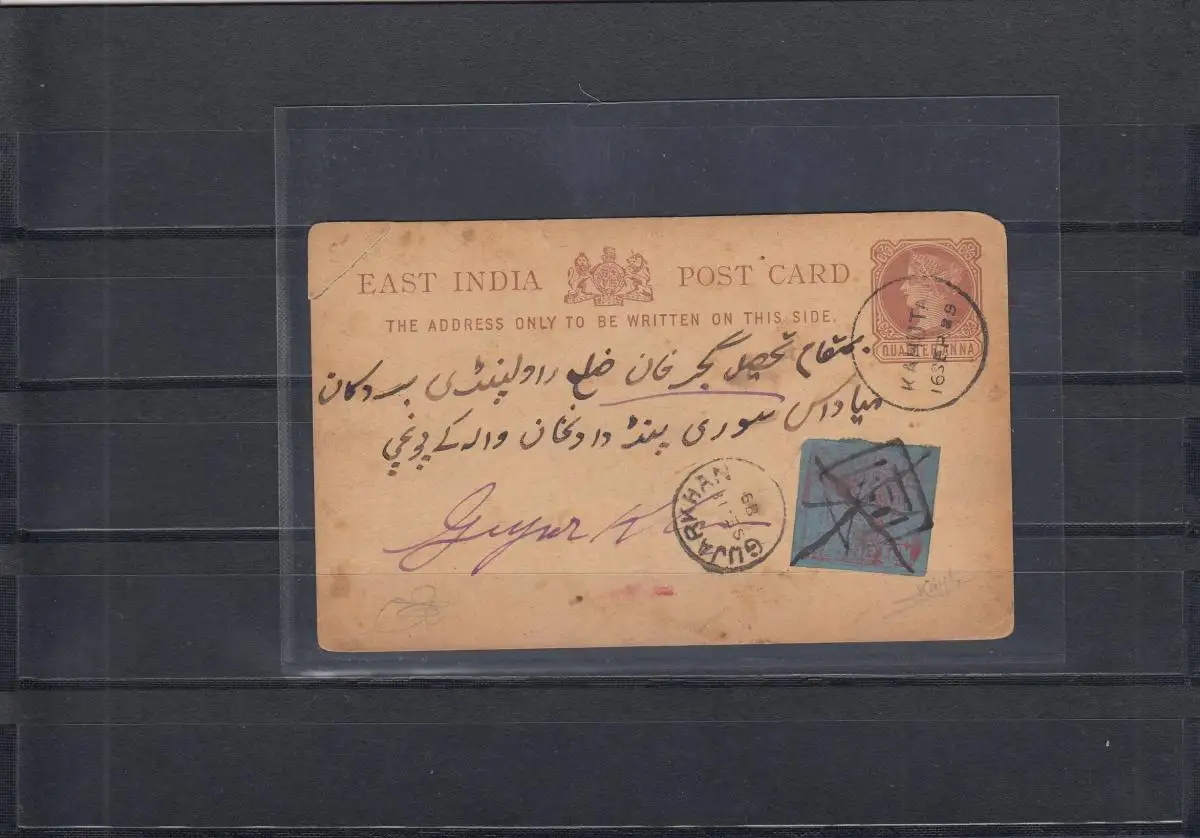 EAST INDIA POST CARD
THE ADDRESS ONLY TO BE WRITTEN ON THIS SIDE.
QUARTER ANNA
KAHUTA
16 SEP 89
بمقام تحصیل گجر خان ضلع راولپنڈی بر دکان
داس سوری پنڈ دادنخان والہ کے پہونچے
Gujar
GUJARKHAN
SE
89